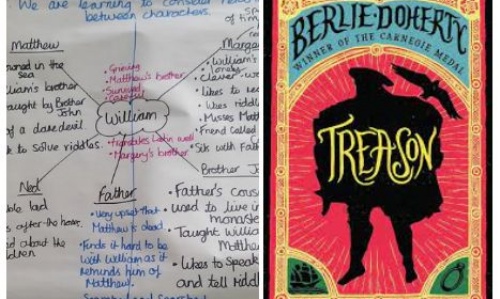 We are learning to consider
between characters.
Matthew
in the
sea
brother
taught by Brother
John
of a daredevil.
to Solve riddles.
• Grieving
• Matthew's brother
• Survived
• Careful
William
• translates Latin well
• Margery's brother
of tim
Marge
William's
Clever
likes to re
likes riddl
Misses Mat
Friend called
Silk with Fat
Brother J
• Father's cous
used to live i
monaste
• Taught Willia
Matthe
• Likes to Speak
and tell riddl
Ned
lad
after the horse.
about the
Father
• Very upset that
Matthew is dead.
• Finds it hard to be
with William as it
reminds him of
Matthew.
BERLIE DOHERTY
WINNER OF THE CARNEGIE MEDAL
TREASON